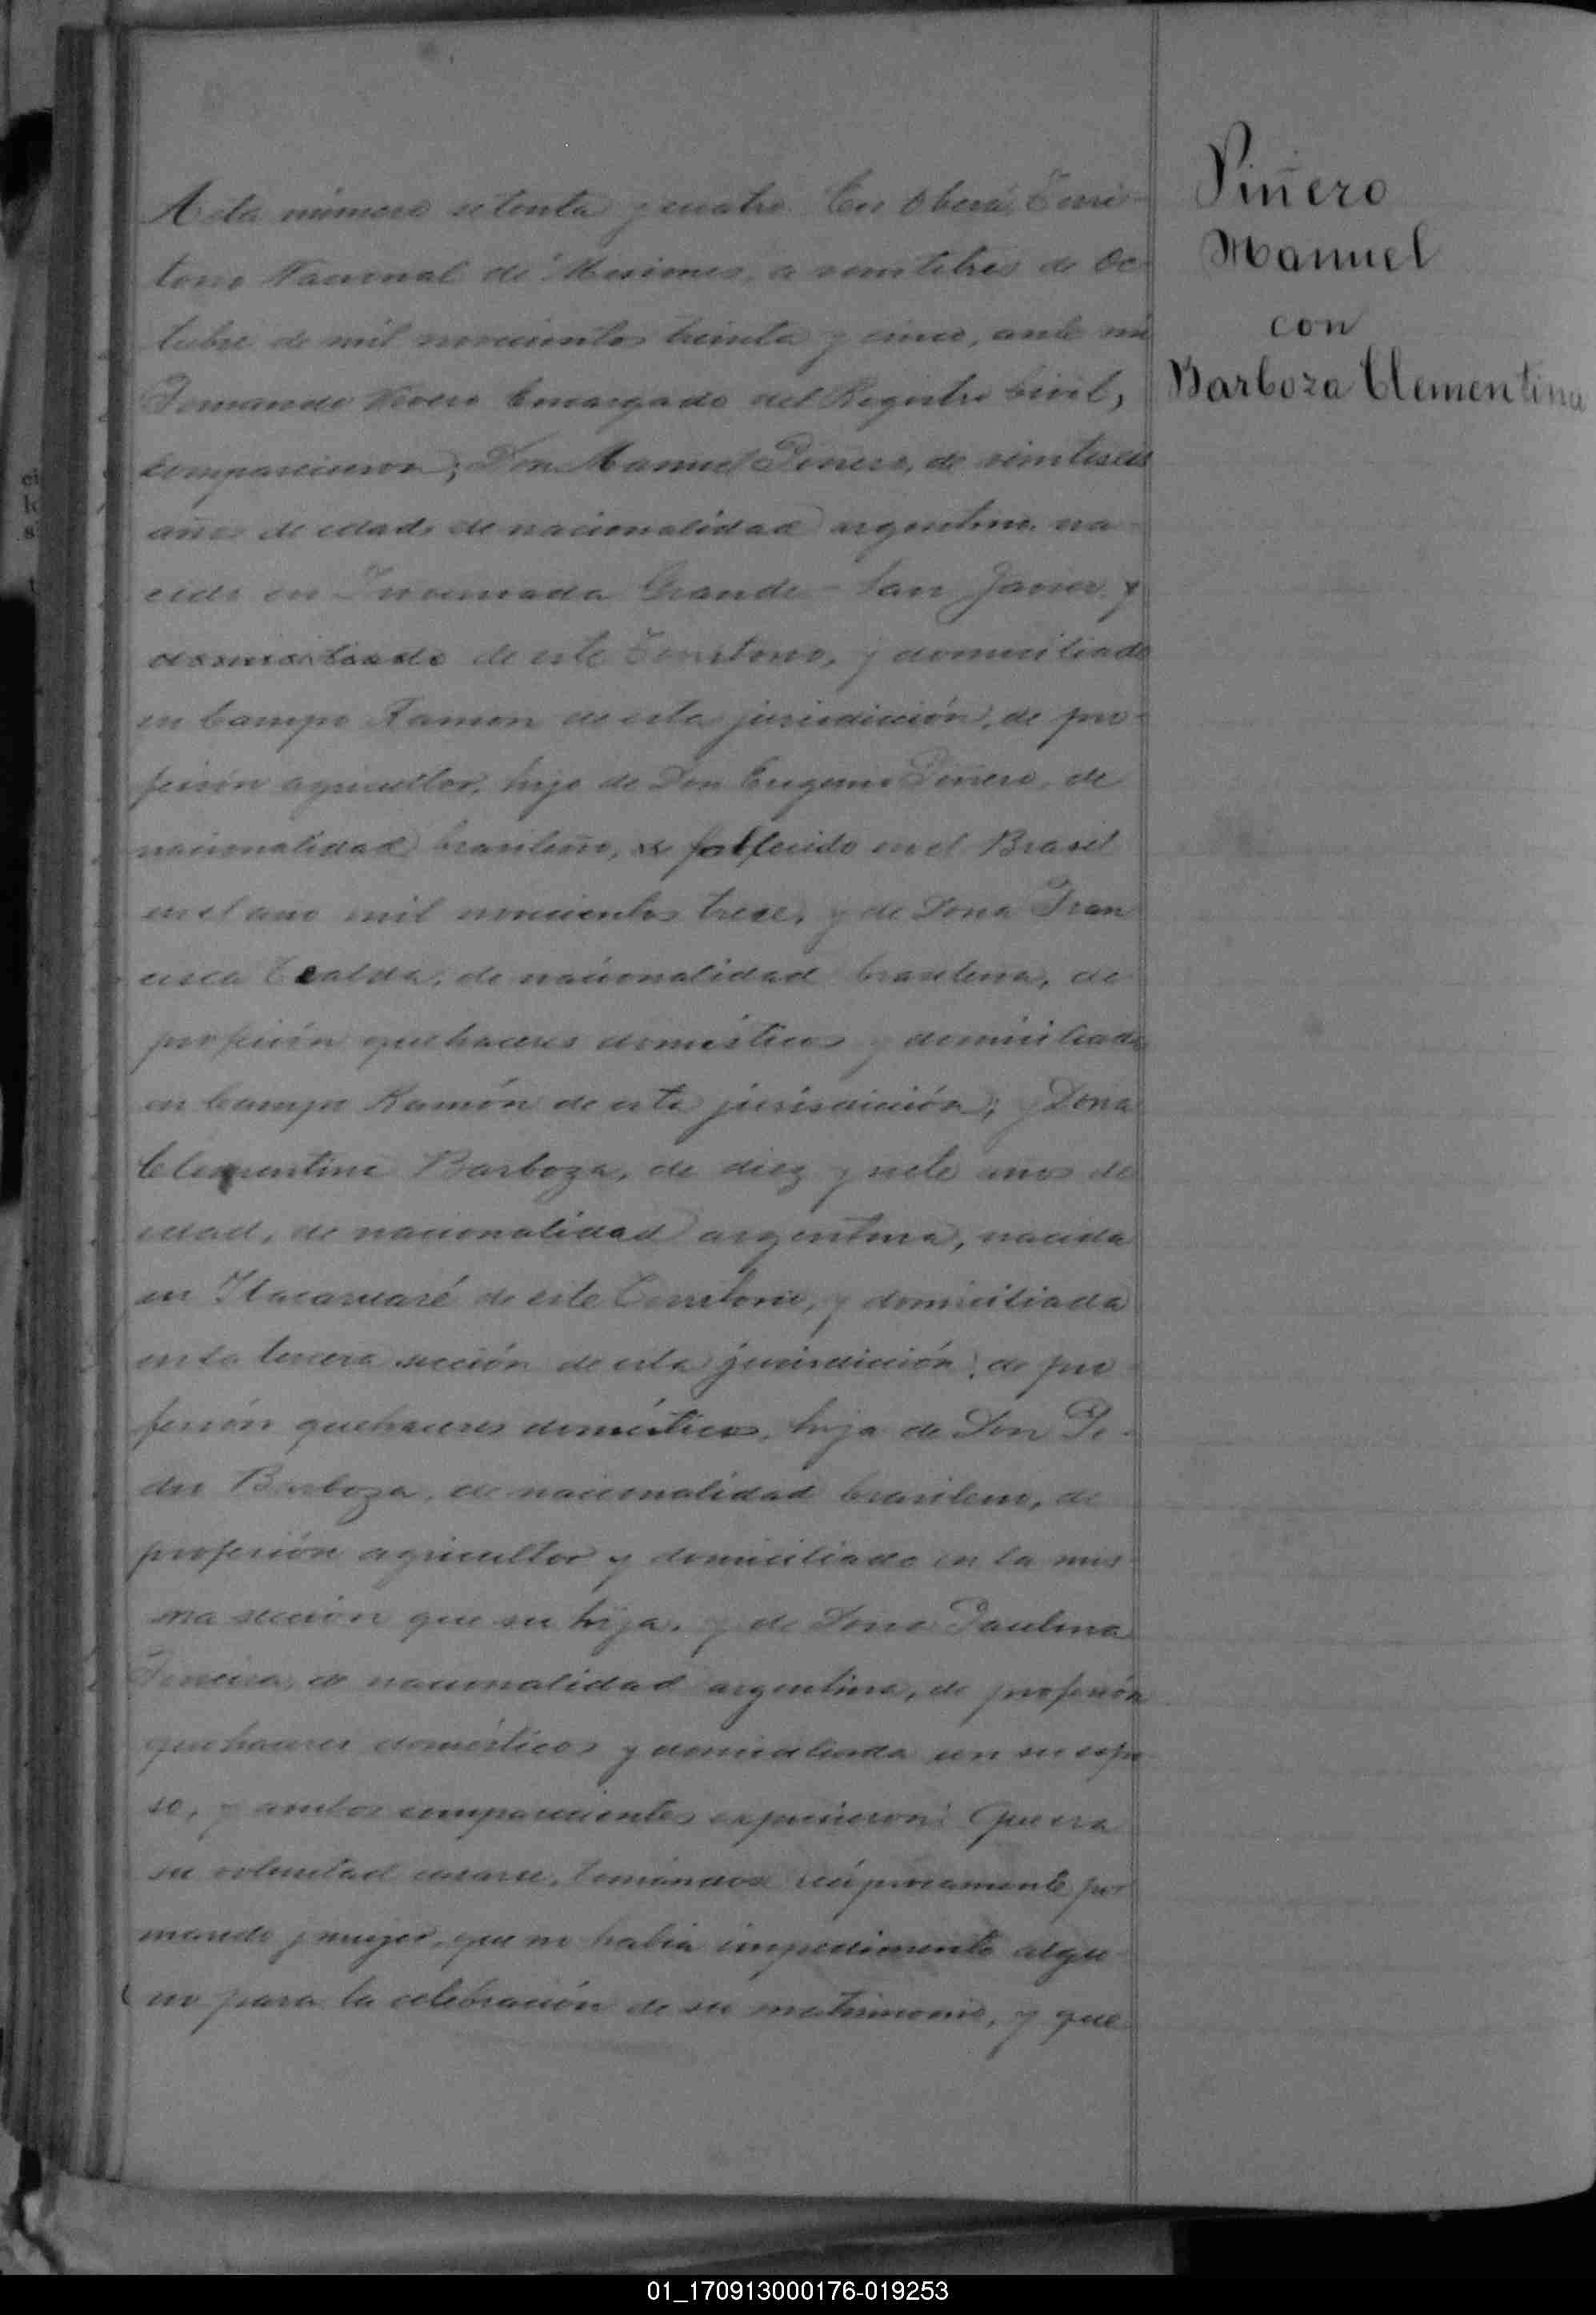 Piñero
Manuel
con
Barboza Clementina
Acta número setenta y cuatro. En Oberá, Terri-
torio Nacional de Misiones, a veintitres de Oc-
tubre de mil novecientos treinta y cinco, ante mi
Encargado del Registro Civil,
comparecieron; Don Manuel Piñero, de veintiseis
años de edad, de nacionalidad argentino, na-
cido en Grande - San Javier y
de este Territorio, y domiciliado
en Campo Ramon de esta jurisdicción, de pro-
fesión agricultor, hijo de Don Eugenio Piñero, de
nacionalidad brasileño, fallecido en el Brasil
en el año mil novecientos trece, y de Doña Fran
cisca de nacionalidad brasileña, de
profesión quehaceres domésticos y domiciliada
en Campo Ramón de esta jurisdicción; y Doña
Clementina Barboza, de diez y siete años de
edad, de nacionalidad argentina, nacida
en Itacaruaré de este Territorio, y domiciliada
en la tercera sección de esta jurisdicción, de pro-
fesión quehaceres domésticos, hija de Don Pe-
dro Barboza, de nacionalidad brasilero, de
profesión agricultor y domiciliado en la mis-
ma sección que su hija, y de Doña Paulina
de nacionalidad argentina, de profesión
quehaceres domésticos y domiciliada con su espo-
so, y ambos comparecientes expusieron: Que era
su voluntad casarse, tomándose recíprocamente por
marido y mujer, que no había impedimento algu-
no para la celebración de su matrimonio, y que
01_170913000176-019253